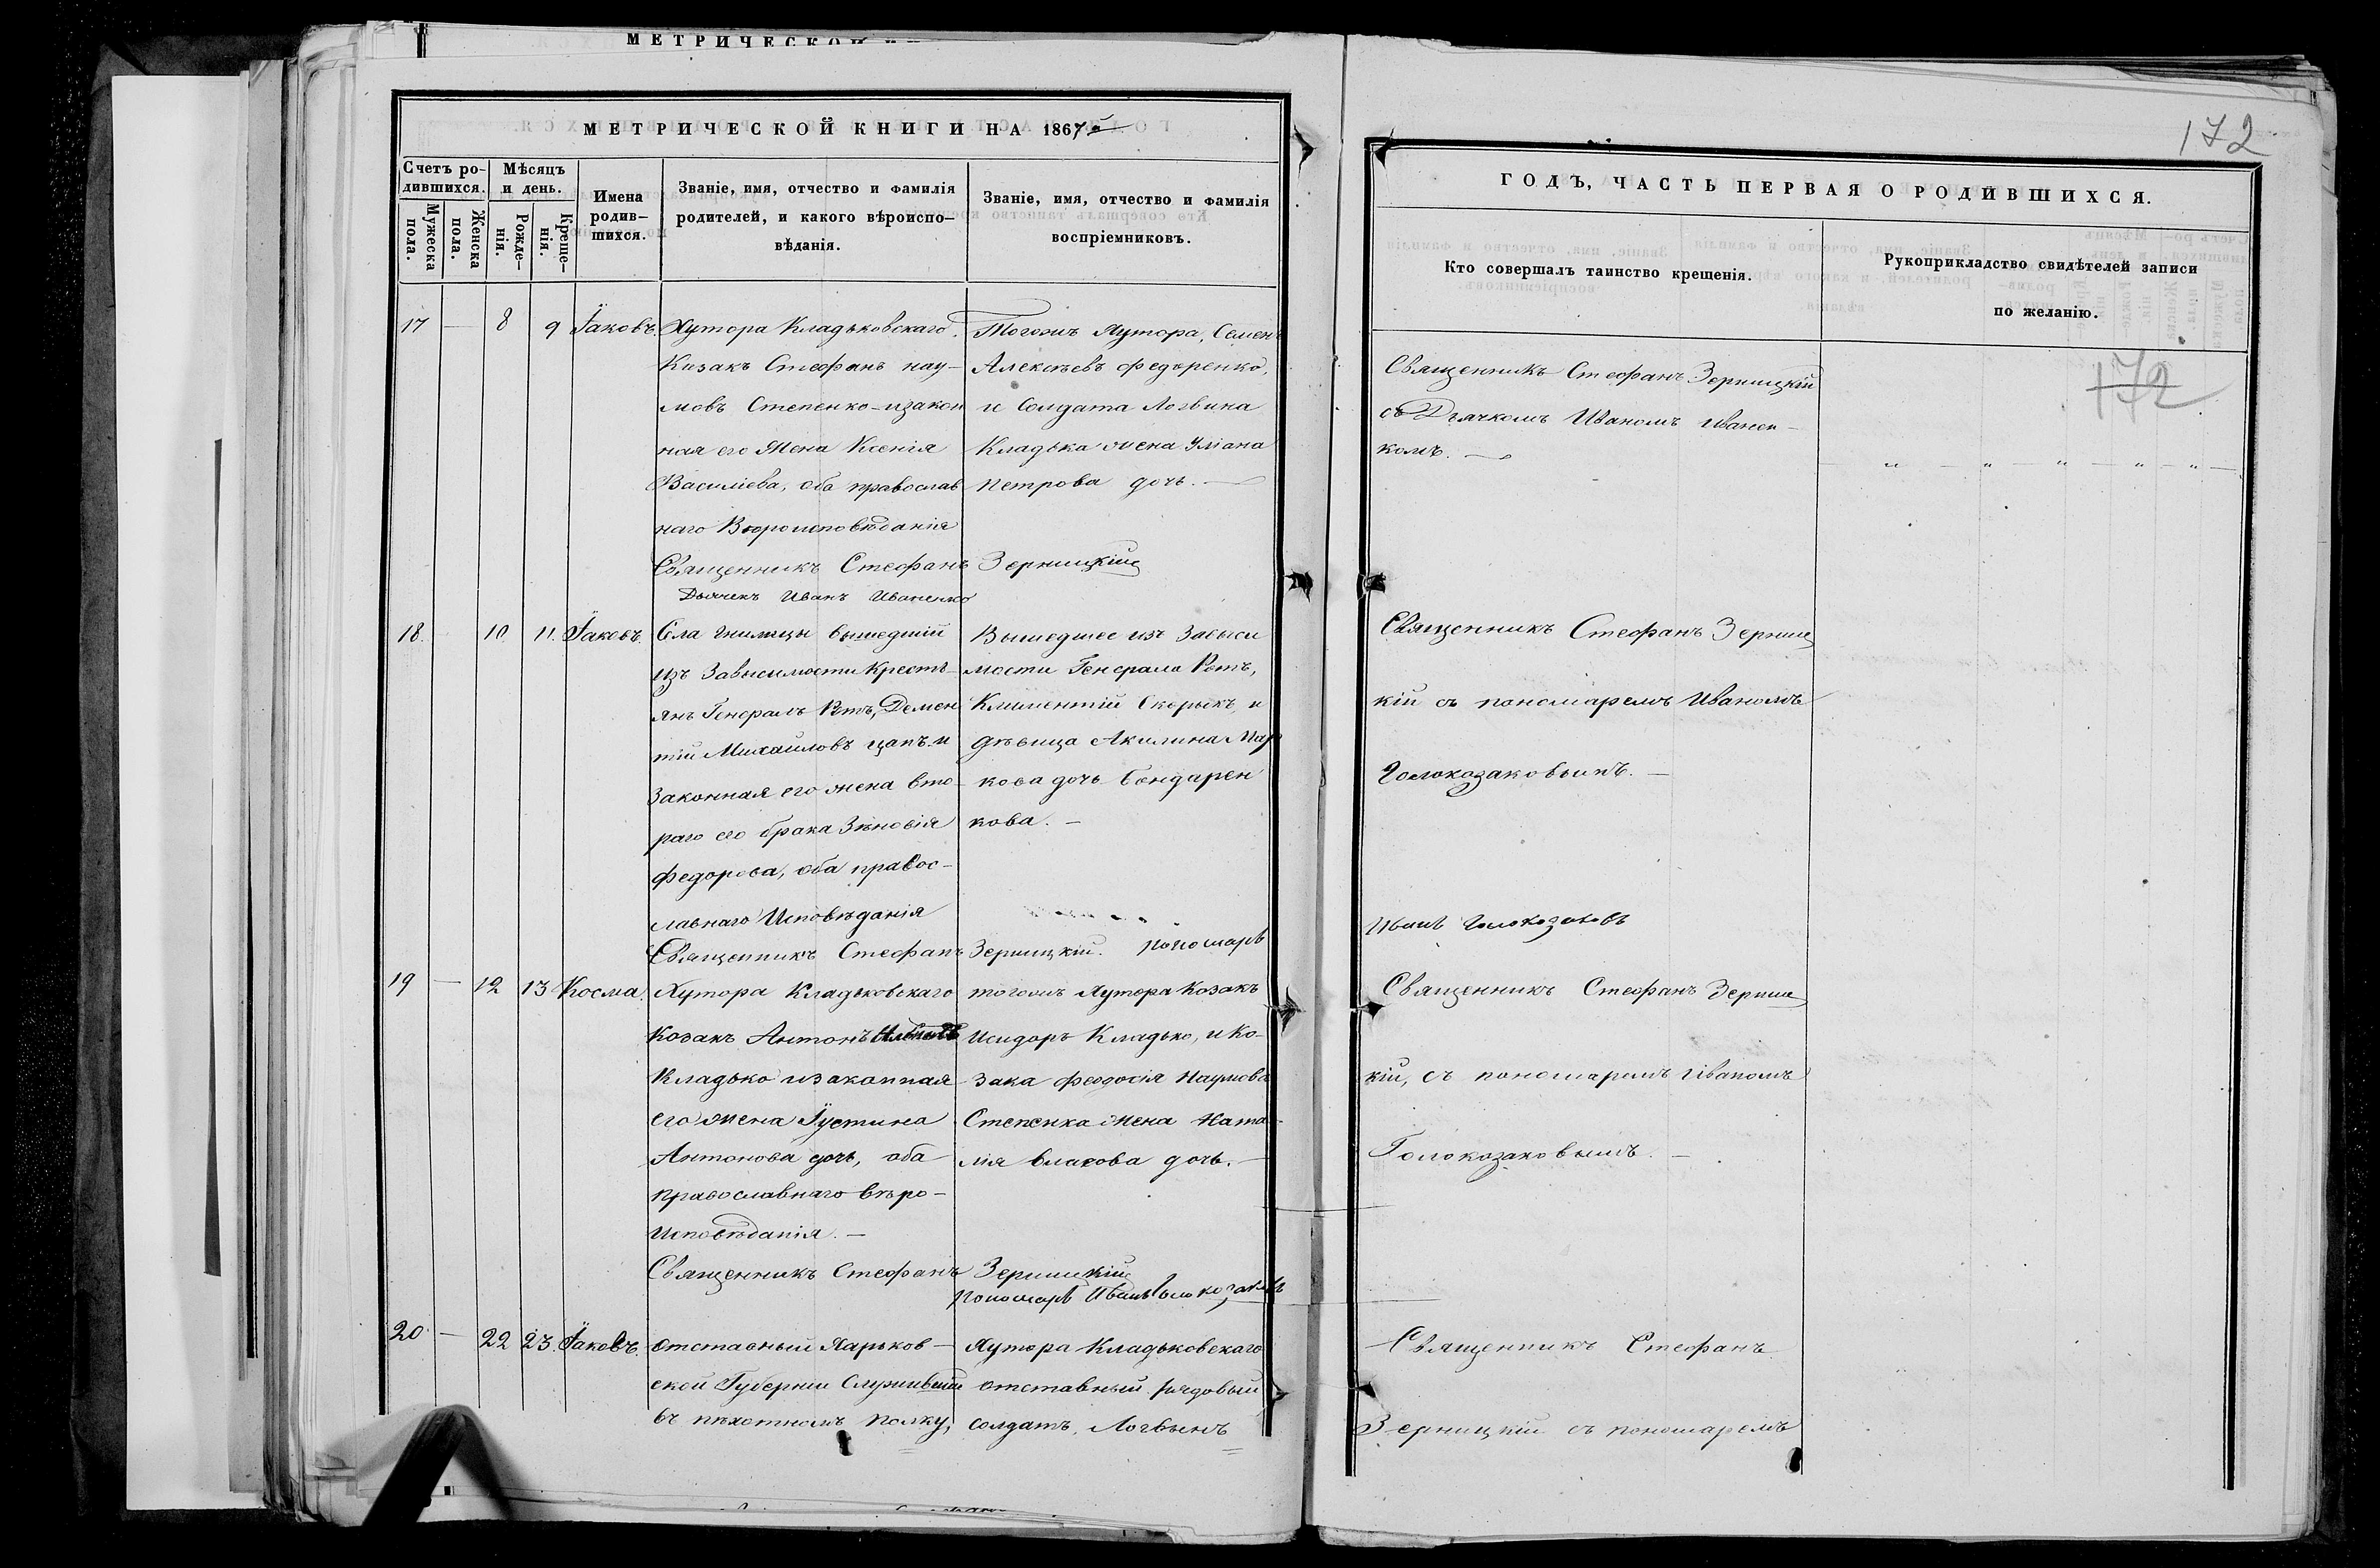 МЕТРИЧЕСКОЙ
МЕТРИЧЕСКОЙ КНИГИ НА 1867й
Счетъ ро-
дившихся.
Мужеска
пола.
Женска
пола.
Мѣсяцъ
и день.
Рожде-
нія.
Креще-
нія.
Имена
родив-
шихся.
Званіе, имя, отчество и фамилія
родителей, и какого вѣроиспо-
вѣданія.
Званіе, имя, отчество и фамилія
воспріемниковъ.
17 — 8 9 Іаковъ.
Хутора Кладьковскаго.
Козакъ Стефанъ нау-
мовъ Степенко-изакон
ная его Жена Ксенія
Василіева, оба православ
наго Вѣроисповѣданія
Тогожъ Хутора, Семенъ
Алексѣевъ Федоренко,
и Солдата Логвина
Кладька жена Уліана
Петрова дочь. —
Священникъ Стефанъ Зерницкій
Дьячекъ Иванъ Иваненко
18. 10 11. Іаковъ.
Села Гнилицы вышедшій
изъ Завысимости Крестъ-
янъ Генералъ Ротъ, Демен
тій Михайловъ Цапъ. и
Законная его жена вто-
раго его брака Зѣновія
Федорова, оба правос-
лавнаго Исповѣданія
Вышедшее изъ Завыси
мости Генерала Ротъ,
Климентій Скорыкъ, и
дѣвица Акилина Мар
кова дочь Бондарен
кова. —
Священникъ Стефанъ Зерницкій. Пономарь
19 — 12 13 Косма.
Хутора Кладьковскаго
Козакъ Антонъ
Кладько изаконная
его жена Іустина
Антонова дочь, оба
православнаго вѣро-
Исповѣданія. —
тогожъ Хутора Козакъ
Исидоръ Кладько, и Ко-
зака Феодосія Наумова
Степенка Жена Ната-
лія Власова дочь. —
Священникъ Стефанъ Зерницкій
Пономарь Иванъ Голоказаковъ
20. — 22 23. Іаковъ.
Отставный Харьков-
ской Губерніи Служивший
въ пѣхотномъ полку,
Хутора Кладьковскаго
отставный рядовый
солдатъ, Логвынъ
172
ГОДЪ, ЧАСТЬ ПЕРВАЯ О РОДИВШИХСЯ.
Кто совершалъ таинство крещенія.
Рукоприкладство свидѣтелей записи
по желанію.
172
Священникъ Стефанъ Зерницкій
съ Дьячкомъ Иваномъ Иванен-
комъ. —
Священникъ Стефанъ Зерниц
кій съ пономаремъ Иваномъ
Голоказаковымъ. —
Иванъ Голоказаковъ
Священникъ Стефанъ Зерниц
кій, съ пономаремъ Иваномъ
Голоказаковымъ. —
Священникъ Стефанъ
Зерницкій съ пономаремъ